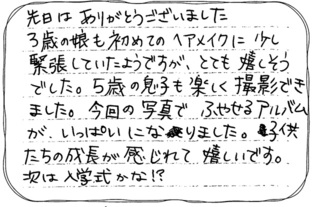 先日は ありがとうございました
3歳の娘も初めてのヘアメイクに 少し
緊張していたようですが、とても 嬉しそう
でした。5歳の息子も楽しく 撮影でき
ました。今回の写真で ふやせるアルバム
が、いっぱいになりました。子供
たちの成長が 感じれて 嬉しいです。
次は 入学式かな!?